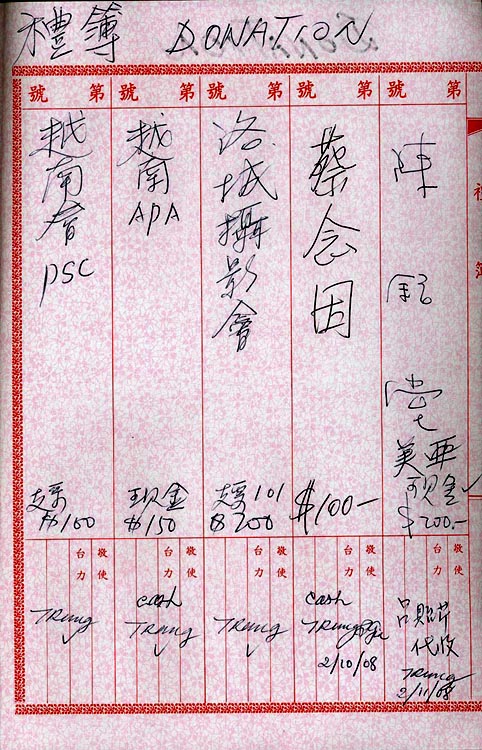 禮簿 DONATION
第 號
陳
美亞
現金
$200.-
敬使
台力
代收
Trung
2/11/08
第 號
蔡念因
$100-
敬使
台力
cash
Trung
2/10/08
第 號
洛城攝影會
支票101
$200
敬使
台力
Trung
第 號
越南APA
現金
$150
敬使
台力
cash
Trung
第 號
越南會PSC
支票
$100
敬使
台力
Trung